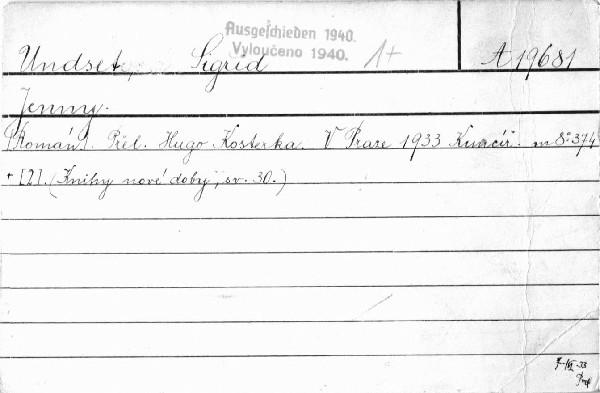 Ausgeschieden 1940.
Vyloučeno 1940. 1+
Undset, Sigrid A 19681
Jenny.
[Román]. Přel. Hugo Kosterka. V Praze 1933 Kuncíř. m 8° 374
+ [2]. (Knihy nové doby, sv. 30.)